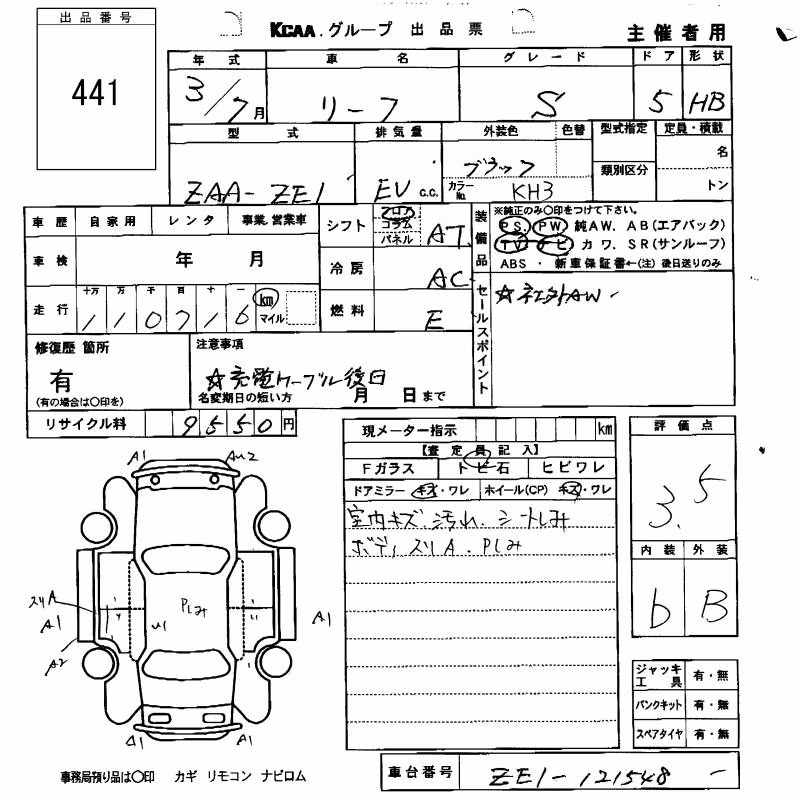 出品番号
441
KCAA.グループ 出品票
主催者用
年式 車名 グレード ドア 形状
3/7月 リーフ S 5 HB
型式 排気量 外装色 色替 型式指定 定員・積載
ZAA-ZE1 EV c.c. ブラック 類別区分 名
カラーNo. KH3 トン
車歴 自家用 レンタ 事業、営業車
シフト フロア コラム パネル AT
車検 年 月
冷房 AC
走行 十万 万 千 百 十 一
110716 km マイル
燃料 E
装備品
※純正のみ○印をつけて下さい。
PS. PW 純AW. AB(エアバック)
TV ナビ カワ. SR(サンルーフ)
ABS ・ 新車保証書←(注) 後日送りのみ
セールスポイント
☆社外AW
修復歴 箇所
有
(有の場合は○印を)
注意事項
☆充電ケーブル後日
名変期日の短い方 月 日まで
リサイクル料 9550円
現メーター指示 km
【査定員記入】
Fガラス トビ石 ヒビワレ
ドアミラー キズ・ワレ ホイール(CP) キズ・ワレ
室内キズ 汚れ. シートしみ
ボディスリA. Pしみ
評価点
3.5
内装 外装
b B
A1 AU2
スリA
A1
A2
Pしみ
U1
A1
A1 A1
ジャッキ工具 有・無
パンクキット 有・無
スペアタイヤ 有・無
事務局預り品は○印 カギ リモコン ナビロム
車台番号 ZE1-121548